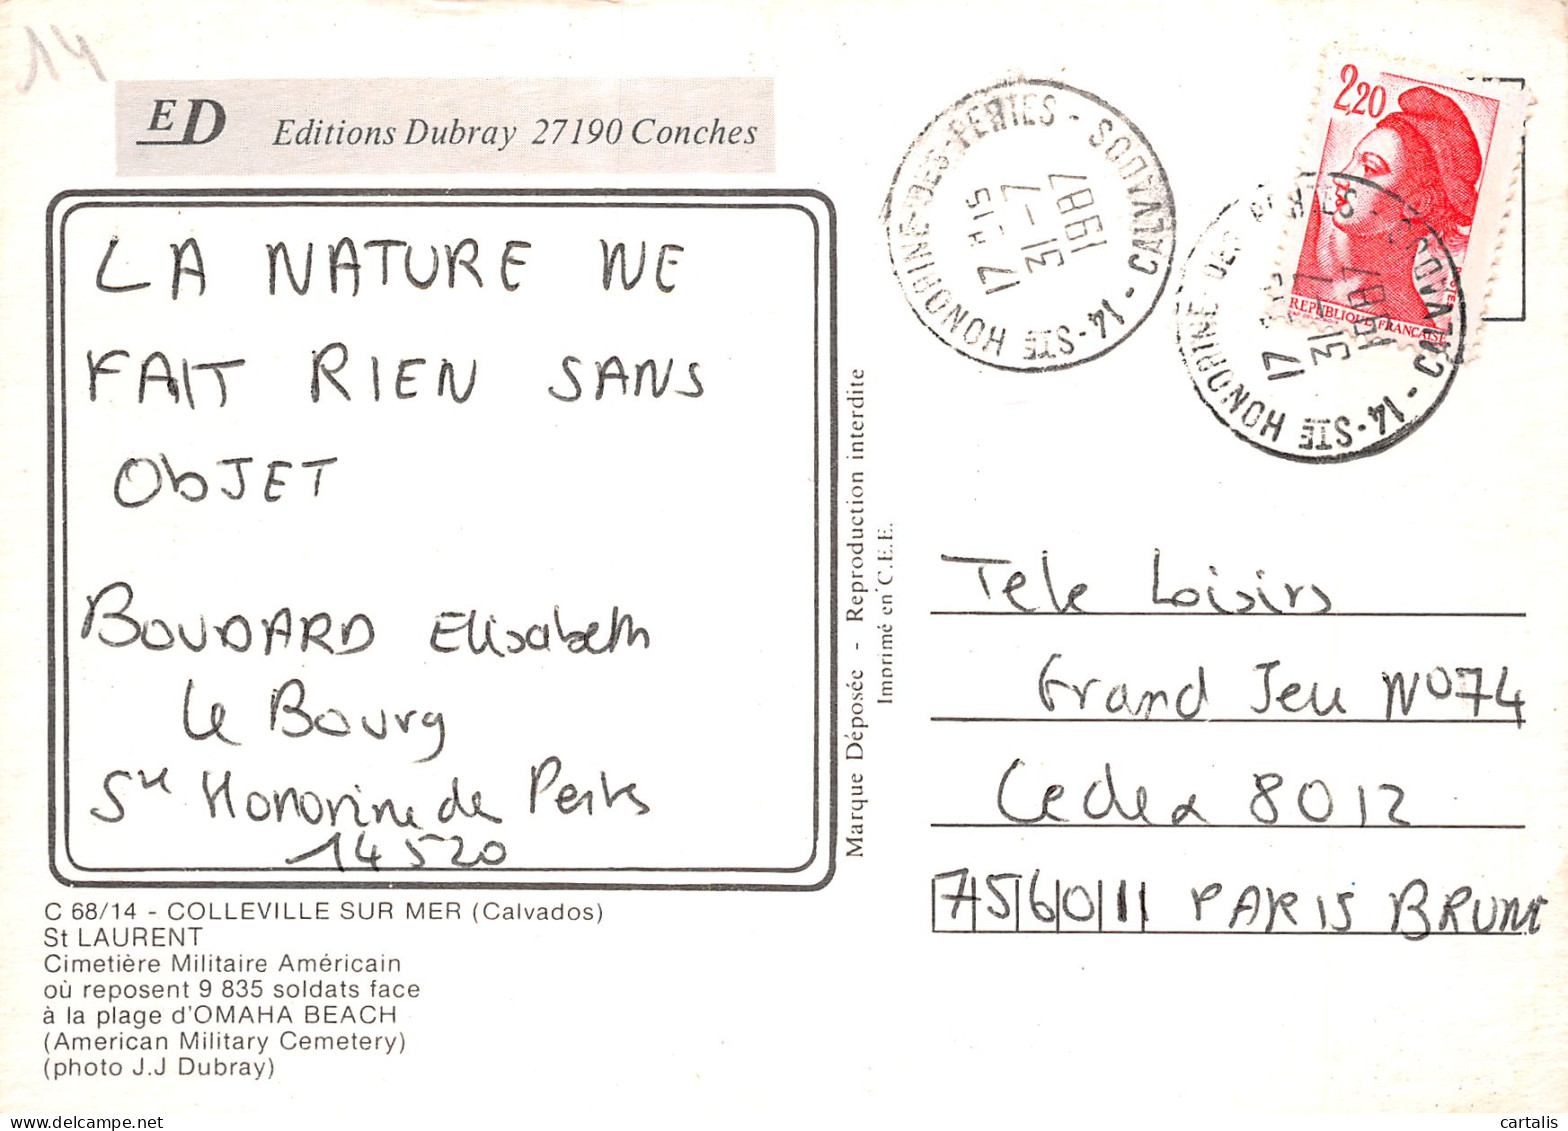 14
ED Editions Dubray 27190 Conches
LA NATURE NE
FAIT RIEN SANS
ObJET
BOUDARD Elisabeth
Le Bourg
Ste Honorine de Pertes
14520
C 68/14 - COLLEVILLE SUR MER (Calvados)
St LAURENT
Cimetière Militaire Américain
où reposent 9 835 soldats face
à la plage d'OMAHA BEACH
(American Military Cemetery)
(photo J.J Dubray)
Marque Déposée - Reproduction interdite
Imprimé en C.E.E.
14-STE HONORINE-DES-PERTES - CALVADOS
17 H 15
31-7
1987
2,20
REPUBLIQUE FRANCAISE
14-STE HONORINE-DES-PERTES - CALVADOS
17
31-7
1987
Tele Loisirs
Grand Jeu N°74
Cedex 8012
75601 PARIS BRUNE
cartalis